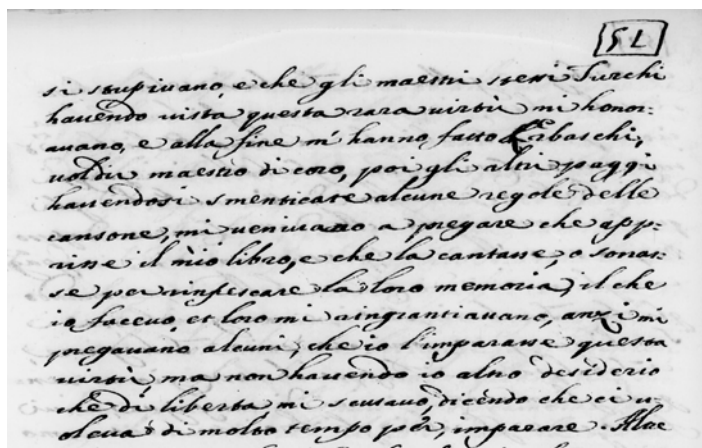 51
si stupivano, e che gli maestri stessi Turchi
havendo vista questa rara virtù mi honor:
avano, e alla fine m'hanno fatto Erbaschi,
voldir maestro di coro, poi gli altri paggi
havendosi smenticate alcune regole delle
cansone, mi venivano a pregare che app:
risse il mio libro, e che la cantasse, o sonas:
se per rinfescare la loro memoria, il che
io facevo, et loro mi ringrantiavano, anzi mi
pregavano alcuni, che io l'imparasse questa
virtù, ma non havendo io altro desiderio
che di libertà, mi scusavo, dicendo che ci v:
oleva di molto tempo per, imparare.